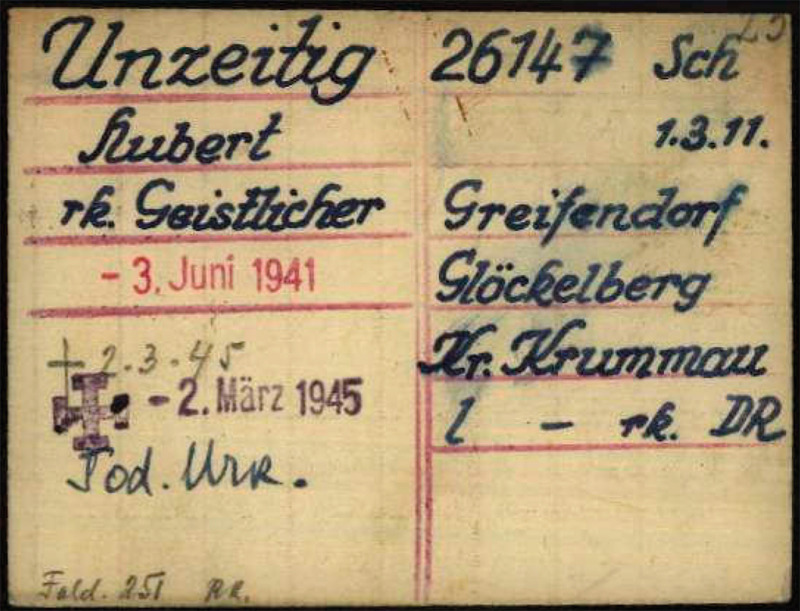 Unzeitig
Hubert
rk. Geistlicher
- 3. Juni 1941
+ 2.3.45
- 2. März 1945
Tod. Urk.
26147 Sch
1.3.11.
Greifendorf
Glöckelberg
Kr. Krummau
l - rk. DR
251